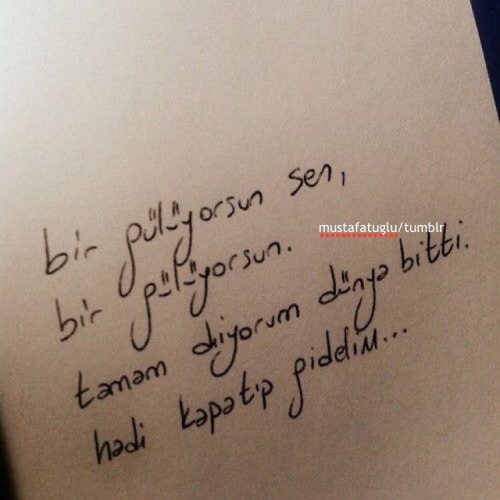 bir gülüyorsun sen,
mustafatuglu/tumblr
bir gülüyorsun.
tamam diyorum dünya bitti.
hadi kapatıp giddim...